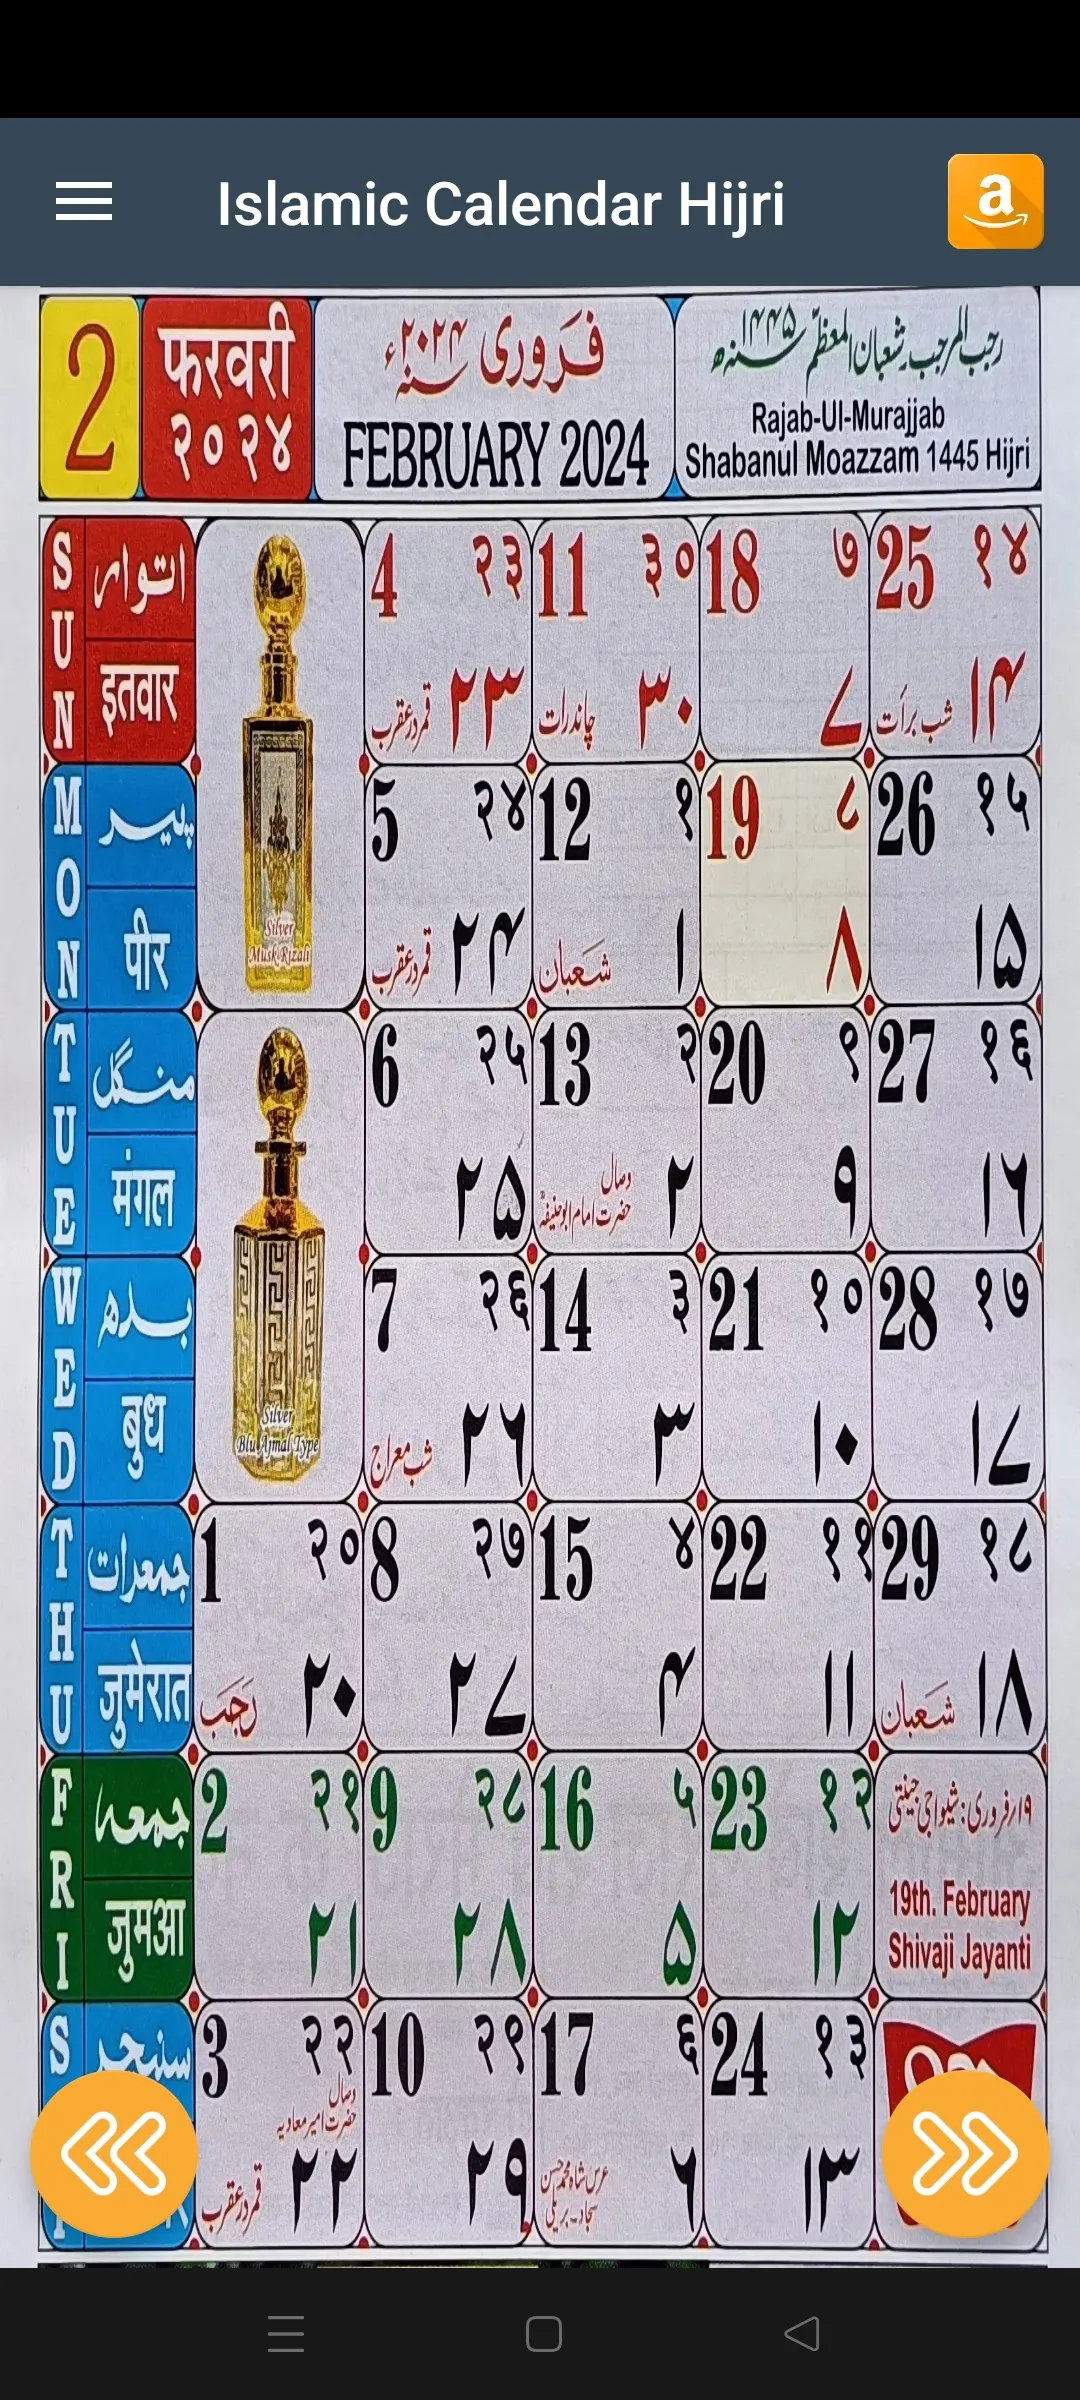 Islamic Calendar Hijri
a
2
फरवरी
२०२४
فَروری سنہ ۲۰۲۴ء
FEBRUARY 2024
رجب المرجب۔شعبان المعظّم سنہ ۱۴۴۵ھ
Rajab-Ul-Murajjab
Shabanul Moazzam 1445 Hijri
SUN
اتوار
इतवार
4 २३
قمر در عقرب ۲۳
11 ३०
چاند رات ۳۰
18 ७
۷
25 १४
شب برأت ۱۴
MON
پیر
पीर
Silver
Musk Rizali
5 २४
قمر در عقرب ۲۴
12 १
شعبان ۱
19 ८
۸
26 १५
۱۵
TUE
منگل
मंगल
6 २५
۲۵
13 २
وصال
حضرت امام ابوحنیفہؓ ۲
20 ९
۹
27 १६
۱۶
WED
بدھ
बुध
Silver
Blu Ajmal Type
7 २६
شب معراج ۲۶
14 ३
۳
21 १०
۱۰
28 १७
۱۷
THU
جمعرات
जुमेरात
1 २०
رَجَب ۲۰
8 २७
۲۷
15 ४
۴
22 ११
۱۱
29 १८
شعبان ۱۸
FRI
جمعہ
जुमआ
2 २१
۲۱
9 २८
۲۸
16 ५
۵
23 १२
۱۲
۱۹؍فروری: شیواجی جینتی
19th. February
Shivaji Jayanti
S
سنیچر
3 २२
وصال
حضرت امیر معاویہ
قمر در عقرب ۲۲
10 २९
۲۹
17 ६
عرس شاہ محمد حسن
سجاد۔بریلی ۶
24 १३
۱۳